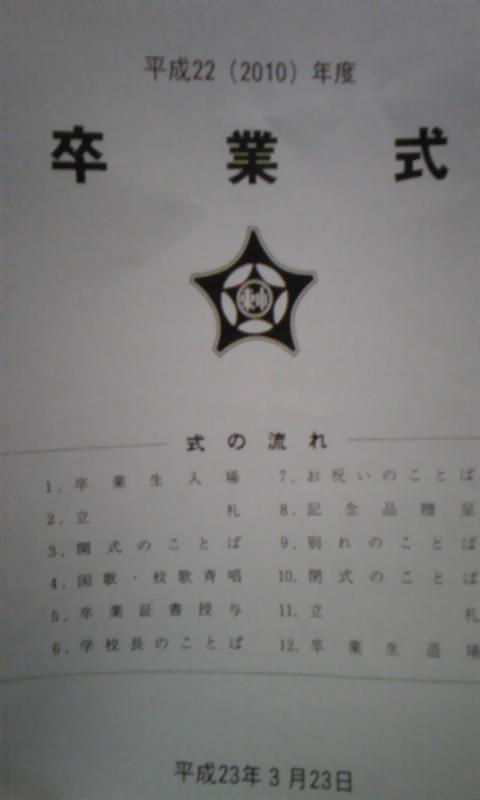 平成22（2010）年度
卒業式
式の流れ
1．卒業生入場
2．立 礼
3．開式のことば
4．国歌・校歌斉唱
5．卒業証書授与
6．学校長のことば
7．お祝いのことば
8．記念品贈呈
9．別れのことば
10．閉式のことば
11．立 礼
12．卒業生退場
平成23年3月23日